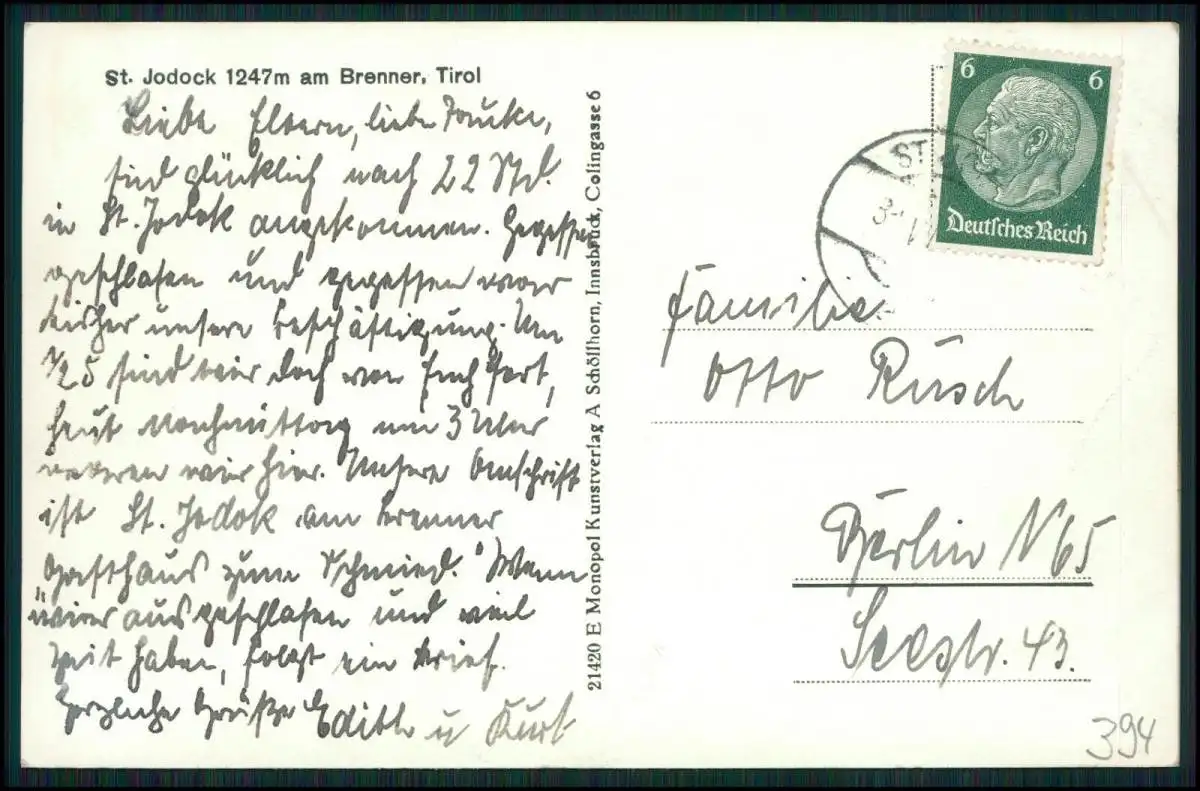 St. Jodock 1247m am Brenner, Tirol
Liebe Eltern, liebe
sind glücklich nach 22 Std.
in St. Jodok angekommen. Gegessen
geschlafen und gegessen war
bisher unsere Beschäftigung. Um
1/2 5 sind wir doch von Euch fort,
heut Nachmittag um 3 Uhr
waren wir hier. Unsere Anschrift
ist St. Jodok am Brenner
Gasthaus zum Schmied." Wenn
wir ausgeschlafen und viel
Zeit haben, folgt ein Brief.
Herzliche Grüße Edith u Kurt
21420 E Monopol Kunstverlag A Schöllhorn, Innsbruck, Colingasse 6
6 6
Deutsches Reich
ST
Familie
Otto Rüsch
Berlin N 65
Seestr. 43.
394